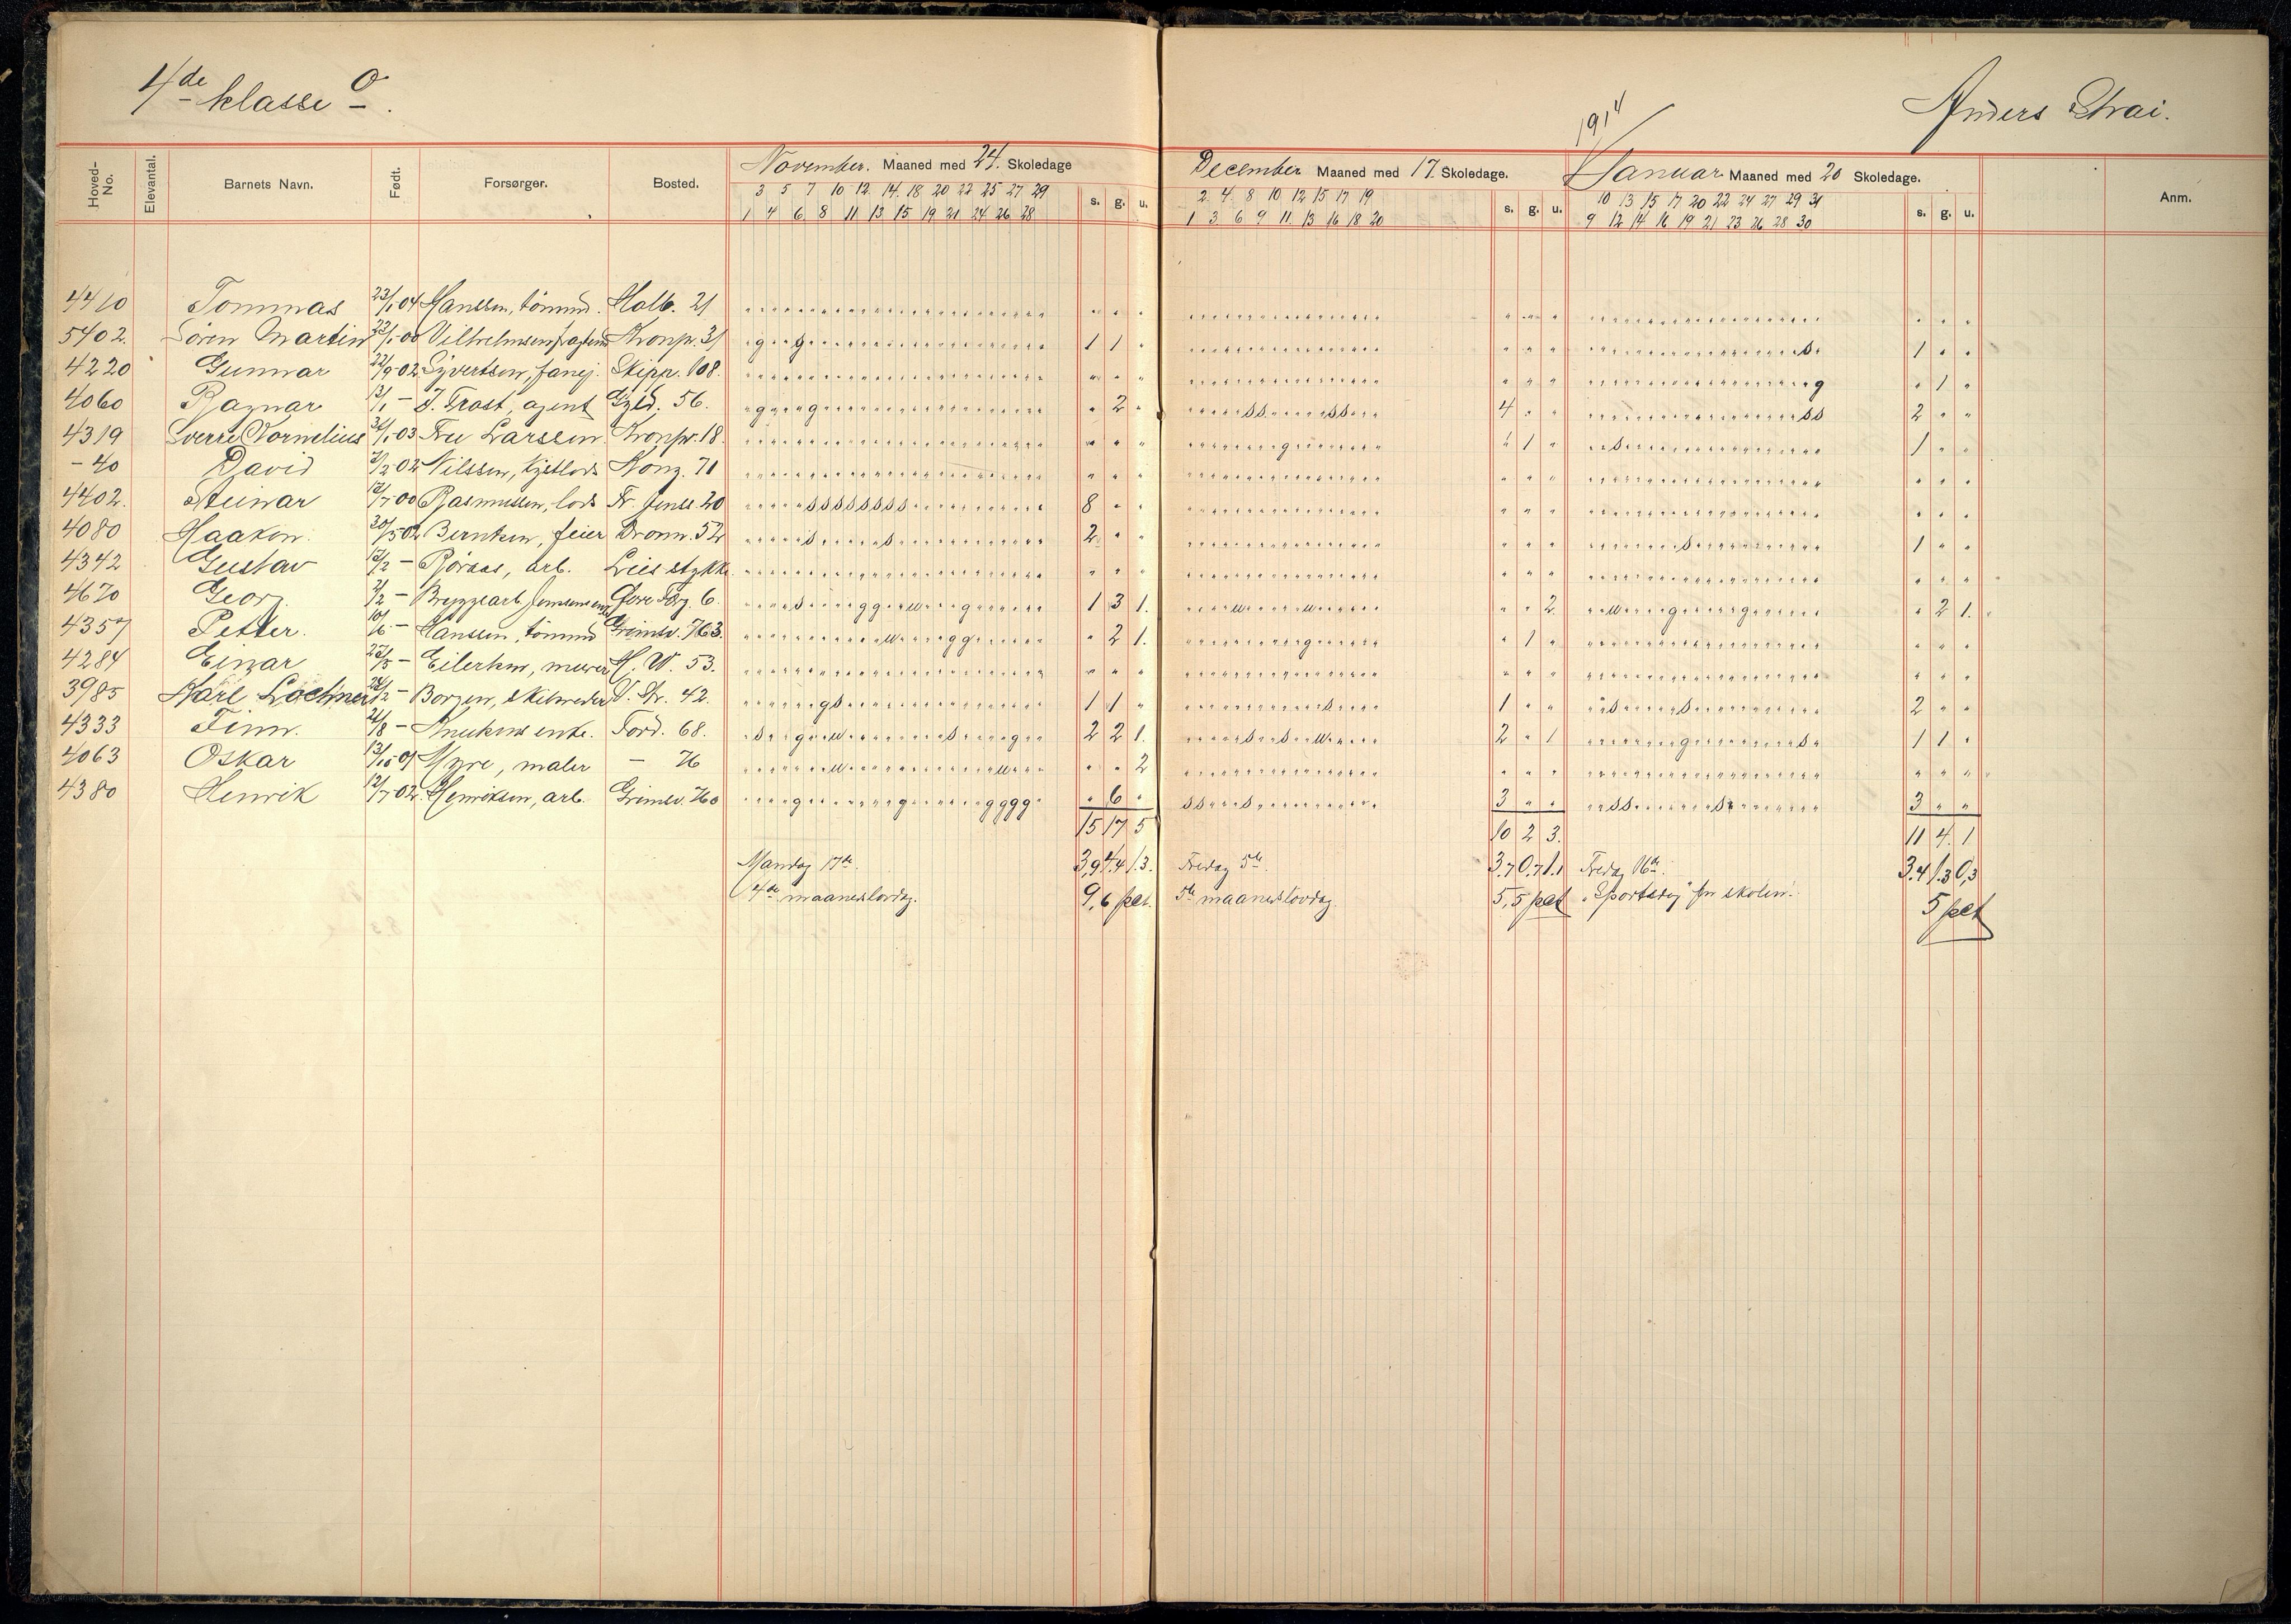 4de klasse O.
Anders Strai.
1914
Hoved-No. Elevantal. Barnets Navn. Født. Forsørger. Bosted. November. Maaned med 24. Skoledage s. g. u. December Maaned med 17. Skoledage. s. g. u. Januar Maaned med 20 Skoledage. s. g. u. Anm.
3 5 7 10 12 14 18 20 22 25 27 29 2 4 8 10 12 15 17 19 10 13 15 17 20 22 24 27 29 31
1 4 6 8 11 13 15 19 21 24 26 28 1 3 6 9 11 13 16 18 20 9 12 14 16 19 21 23 26 28 30
4410 Tommas 23/1-04 Hanssen, tömmd. Holb. 21
5402. Sören Martin 23/1-00 Vilhelmsen, Kronpr. 31 g g 1 1 s 1
4220 Gunnar 22/9-02 Syvertsen, fanej. Skipp. 108. g 1
4060 Ragnar 13/1 - J. Trost, agent Gyld. 56. g g 2 ss ss 4 ss 2
4319 Sverre Kornelius 26/1-03 Fru Larssen. Kronpr. 18 g 1 s 1
-40 David 2/2-02 Nilssen, Kjetlods Kong. 71
4402. Steinar 12/7-00 Rasmussen, lods Fr. Jense. 20 ssssssss 8
4080 Haakon. 20/5-02 Berntsen, feier Dronn. 52 s s 2 s 1
4342 Gustav 12/2 - Röraas, arb. Lies stykke
4670 Georg. 2/2 - Bryggearb. Jensens enke Övre Torg. 6. s gg u g 1 3 1. u u 2 u g g 2 1.
4357 Petter. 10/6 - Hanssen, tömmd Grimsv. 763. u gg 2 1. g 1
4284 Einar 23/5 - Eilertsen, murer H. W. 53.
3985 Karl Lochner 24/2 - Borgen, skibsreder V. Str. 42. gs 1 1 s 1 s s 2
4333 Finn. 21/8 - Knutsens enke. Tord. 68. s g u s g 2 2 1. s s u 2 1 g s 1 1
4063 Oskar 13/10-01 Myre, maler - 76 u u 2
4380 Henrik 12/7-02 Henriksen, arb. Grimsv. 760 g g gggg 6 ss s 3 ss s 3
15 17 5 10 2 3. 11 4. 1
Mandag 17de. 3,9 4.4 1.3. Fredag 5te. 3,7 0,7 1.1 Fredag 16de. 3.4 1.3 0,3
4de maanedslovdag. 9,6 pct. 5te maanedslovdag. 5,5 pct "Sportsdag" for skolen. 5 pct